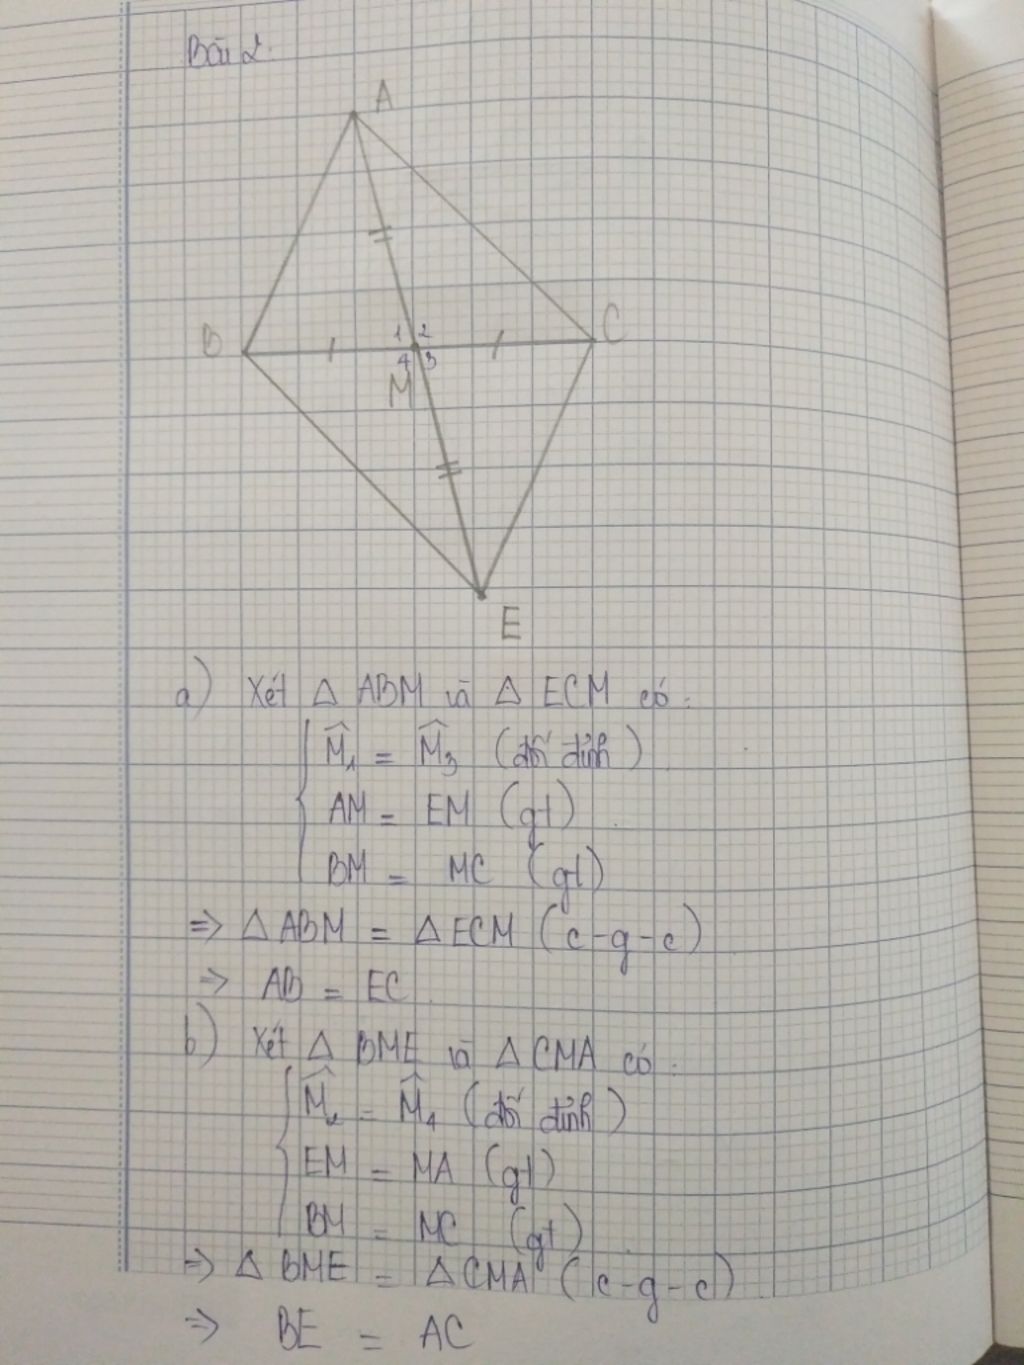 Bài 2.
A
B
1 2
C
4 3
M
E
a) Xét Δ ABM và Δ ECM có:
M̂₁ = M̂₃ (đối đỉnh)
AM = EM (gt)
BM = MC (gt)
=> Δ ABM = Δ ECM (c-g-c)
=> AB = EC
b) Xét Δ BME và Δ CMA có:
M̂₂ = M̂₄ (đối đỉnh)
EM = MA (gt)
BM = MC (gt)
=> Δ BME = Δ CMA (c-g-c)
=> BE = AC